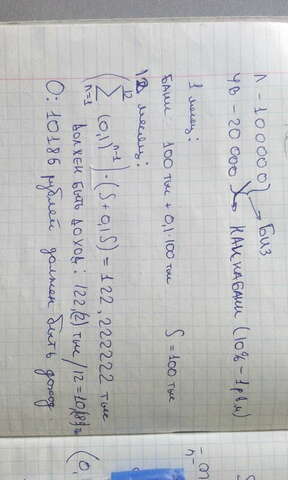 Л - 100 000 } Биз
ЧВ - 20 000 → (10% - 1 р в м)
1 месяц:
БАШИ 100 тыс + 0,1·100 тыс S = 100 тыс
12 месяцев:
(∑ₙ₌₁¹² (0,1)ⁿ⁻¹)·(S + 0,1S) = 122,222222 тыс
должен быть доход: 122,(2) тыс/12 = 10,185
О: 10186 рублей должен быть доход.
(0,